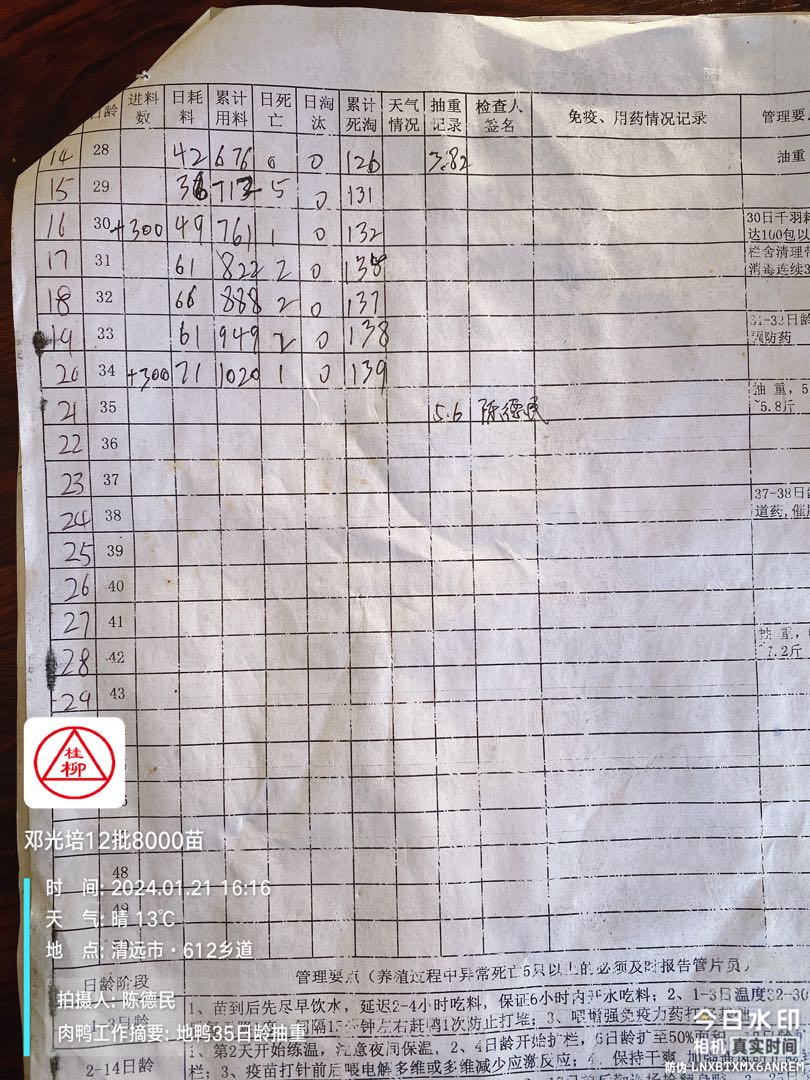 日龄 进料数 日耗料 累计用料 日死亡 日淘汰 累计死淘 天气情况 抽重记录 检查人签名 免疫、用药情况记录 管理要
14 28 42 676 0 0 126 3.82 抽重
15 29 5 0 131
16 30 +300 49 761 1 0 132 30日千羽耗
达100包以
17 31 61 822 2 0 栏舍清理
消毒连续3
18 32 66 888 2 0 137
19 33 61 949 2 0 138 31-33日龄
预防药
20 34 +300 71 1020 1 0 139
21 35 5.6 陈德民 抽重,5
~5.8斤
22 36
23 37
24 38 37-38日龄
道药,催
25 39
26 40
27 41
28 42 抽重,
7.2斤
29 43
桂柳
邓光培12批8000苗
48
49
时 间: 2024.01.21 16:16
天 气: 晴 13℃
地 点: 清远市·612乡道
拍摄人: 陈德民
肉鸭工作摘要: 地鸭35日龄抽重
日龄阶段 管理要点(养殖过程中异常死亡5只以上的必须及时报告管片员)
1、苗到后先尽早饮水,延迟2-4小时吃料,保证6小时内开水吃料;2、1-3日温度32-30
分钟左右赶鸭1次防止打堆;3、喂增强免疫力药
2-14日龄 1、第2天开始练温,注意夜间保温,2、4日龄开始扩栏,6日龄扩至50%面积
栏;3、疫苗打针前后喂电解多维或多维减少应激反应;4、保持干爽
今日水印
相机 真实时间
防伪 LNXBTXMX6ANREH